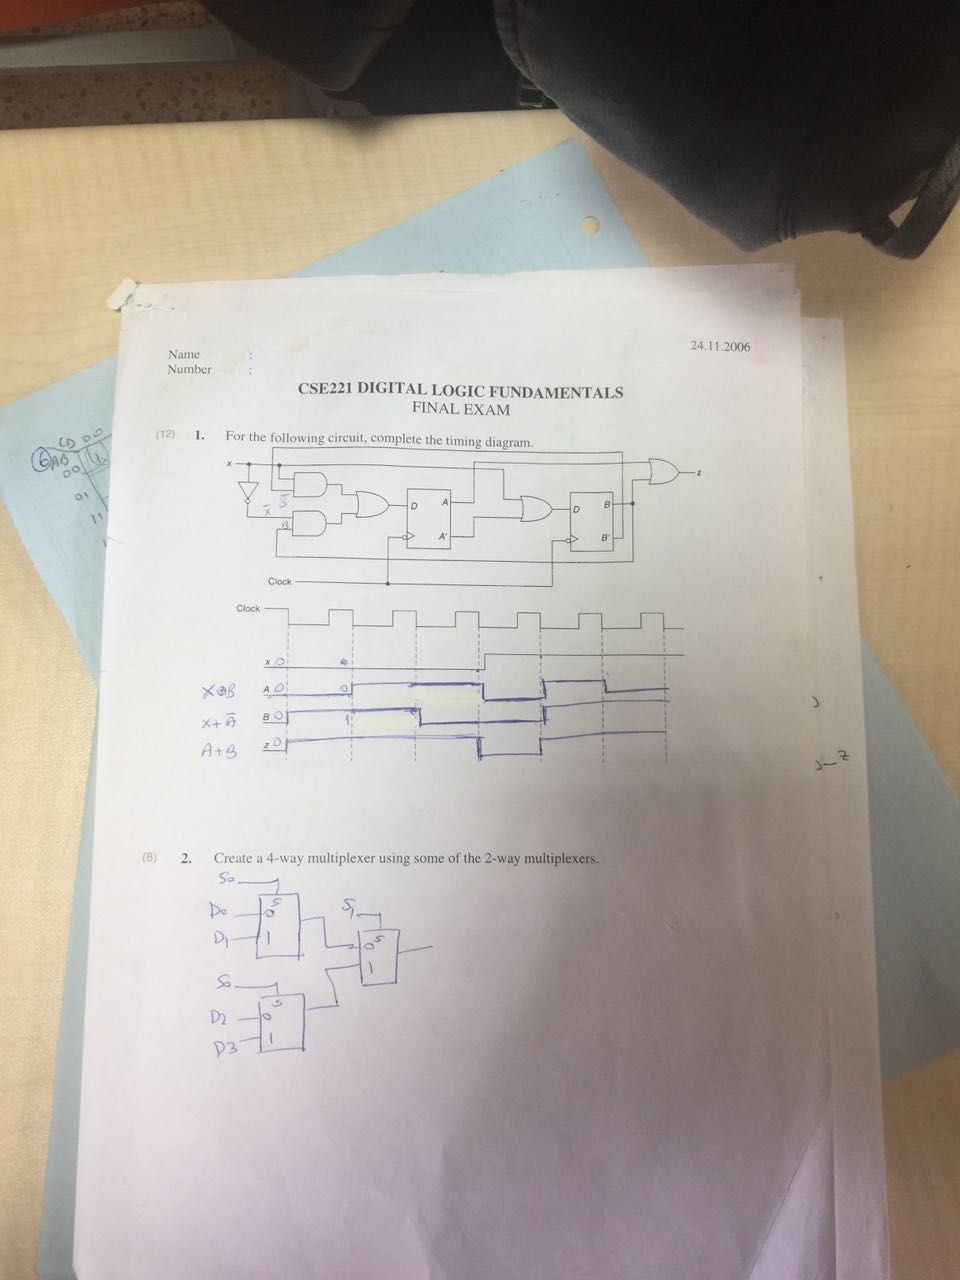 24.11.2006
Name :
Number :
CSE221 DIGITAL LOGIC FUNDAMENTALS
FINAL EXAM
(12) 1. For the following circuit, complete the timing diagram.
x
z
B̅
x̅
B
D A
A'
D B
B'
Clock
Clock
x 0
X⊕B A 0 0
X+A̅ B 0 1
A+B z 0
(8) 2. Create a 4-way multiplexer using some of the 2-way multiplexers.
S0
D0 0 S
D1 1
S1
0 S
1
S0
D2 0 S
D3 1
6 AB CD 00
00 1
01
11
z